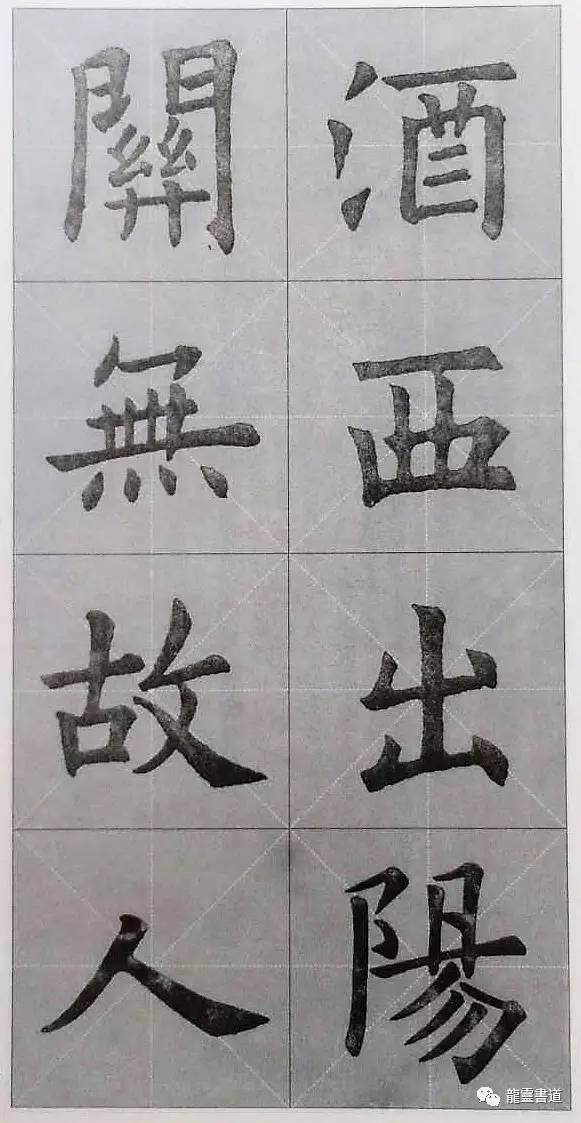 酒西出陽
關無故人
龍靈書道